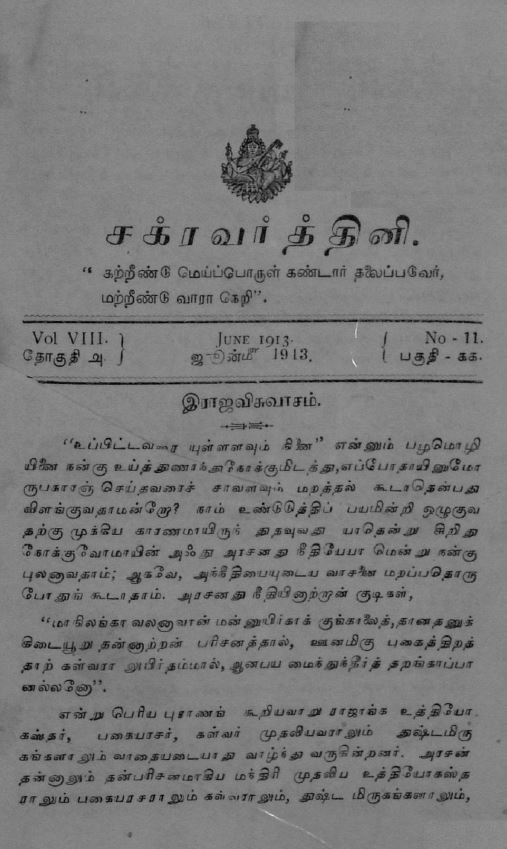 சக்ரவர்த்தினி.
" கற்றீண்டு மெய்ப்பொருள் கண்டார் தலைப்படுவேர்,
மற்றீண்டு வாரா நெறி".
Vol VIII. } JUNE 1913. { No - 11.
தோகுதி அ. } ஜூன்மீ 1913. { பகுதி - கக.
இராஜவிசுவாசம்.
"உப்பிட்டவரை யுள்ளளவும் நினை" என்னும் பழமொழி
யினை நன்கு உய்த்துணர்ந்து நோக்குமிடத்து, எப்போதாயினுமோ
ருபகாரஞ் செய்தவரைச் சாவளவும் மறத்தல் கூடாதென்பது
விளங்குவதாமன்றோ? நாம் உண்டுடுத்திப் பயமின்றி ஒழுகுவ
தற்கு முக்கிய காரணமாயிருந் துதவுவது யாதென்று சிறிது
நோக்குவோமாயின் அஃது அரசனது நீதியேயா மென்று நன்கு
புலனாவதாம்; ஆகவே, அந்நீதியையுடைய வரசனை மறப்பதொரு
போதுங் கூடாதாம். அரசனது நீதியினாற்றான் குடிகள்,
"மாநிலங்கா வலனாவான் மன்னுயிர்காக் குங்காலைத், தானதனுக்
கிடையூறு தன்னாற்றன் பரிசனத்தால், ஊனமிகு பகைத்திறத்
தாற் கள்வரா லுயிர்தம்மால், ஆனபய மைந்துந்தீர்த் தறங்காப்பா
னல்லனோ".
என்று பெரிய புராணங் கூறியவாறு ராஜாங்க உத்தியோ
கஸ்தர், பகையரசர், கள்வர் முதலியவராலும் துஷ்டமிரு
கங்களாலும் வாதையடையாது வாழ்ந்து வருகின்றனர். அரசன்
தன்னாலும் தன்பரிசனமாகிய மந்திரி முதலிய உத்தியோகஸ்த
ராலும் பகையரசராலும் கள்வராலும், துஷ்ட மிருகங்களாலும்,